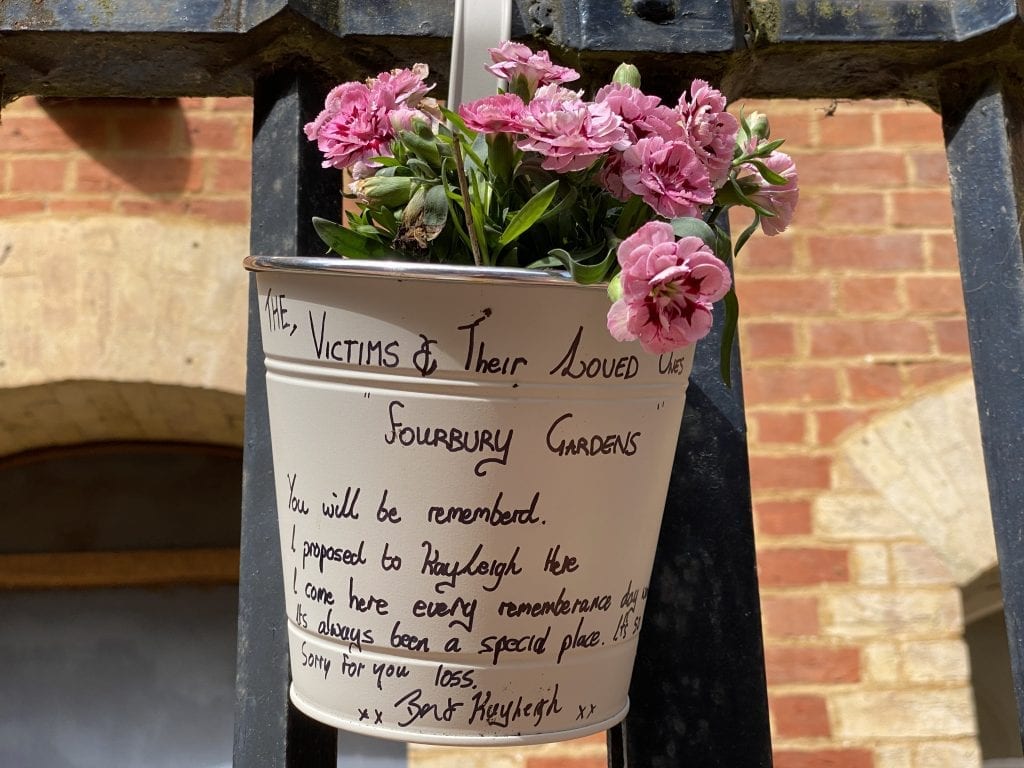 THE, VICTIMS & Their LOVED ONES
"FOURBURY GARDENS"
You will be rememberd.
I proposed to Kayleigh Here
I come here every rememberance day
It's always been a special place. It's
Sorry for you loss.
xx Ben & Kayleigh xx